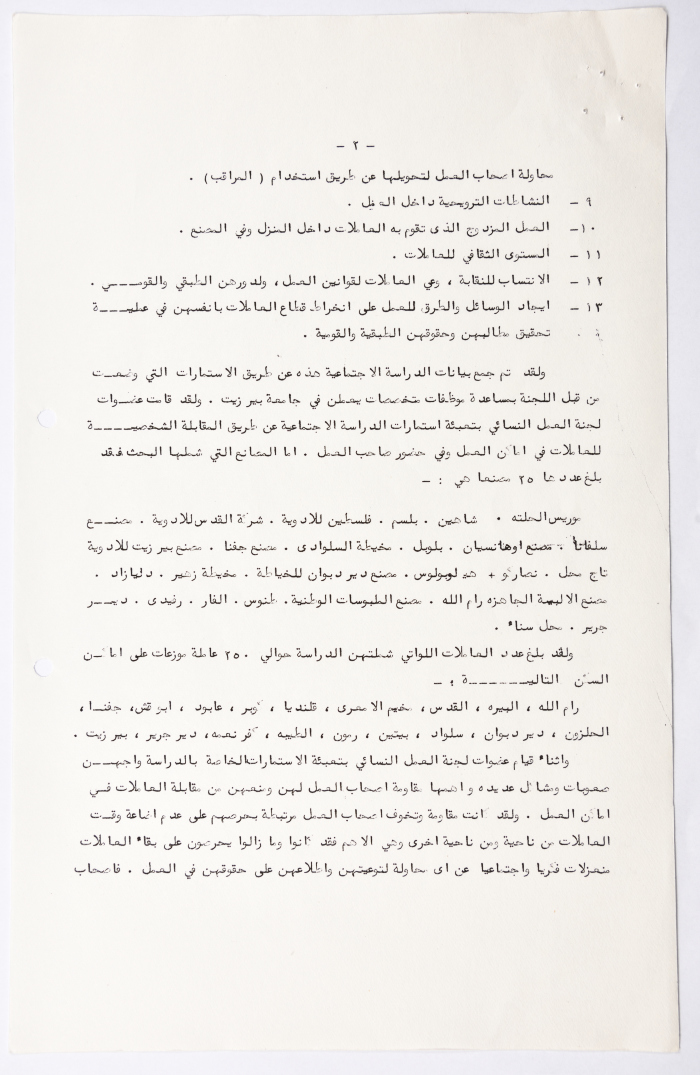 - ٢ -
محاولة اصحاب العمل لتحويلها عن طريق استخدام ( المراقب ) .
٩ - النشاطات الترويحية داخل العمل .
١٠- العمل المزدوج الذى تقوم به العاملات داخل المنزل وفي المصنع .
١١ - المستوى الثقافي للعاملات .
١٢ - الانتساب للنقابة ، وعي العاملات لقوانين العمل، ولدورهن الطبقي والقومـــي .
١٣ - ايجاد الوسائل والطرق للعمل على انخراط قطاع العاملات بانفسهن في عمليـــة
تحقيق مطالبهن وحقوقهن الطبقية والقومية .
ولقد تم جمع بيانات الدراسة الاجتماعية هذه عن طريق الاستمارات التي وضعت
من قبل اللجنة بمساعدة موظفات متخصصات يعملن في جامعة بير زيت . ولقد قامت عضوات
لجنة العمل النسائي بتعبئة استمارات الدراسة الاجتماعية عن طريق المقابلة الشخصيـــة
للعاملات في اماكن العمل وفي حضور صاحب العمل . اما المصانع التي شملها البحث فقد
بلغ عددها ٢٥ مصنعا هي : -
موريس الحلته . شاهين . بلسم . فلسطين للادوية . شركة القدس للادوية . مصنـــع
سلفانا . مصنع اوهانسيان . بلوبل . مخيطة السلوادى . مصنع جفنا . مصنع بير زيت للادوية
تاج محل . نصاركو + هيلوبولوس . مصنع دير دبوان للخياطة . مخيطة زهير . دليازاد .
مصنع الالبسة الجاهزه رام الله . مصنع الطبوسات الوطنية . طنوس . الفار . رفيدى . ديـــر
جرير . محل سناء .
ولقد بلغ عدد العاملات اللواتي شملتهن الدراسة حوالي ٢٥٠ عاملة موزعات على اماكن
السكن التاليـــــــة : -
رام الله ، البيره ، القدس ، مخيم الامعرى ، قلنديا ، كوبر ، عابود ، ابو قش، جفنـا ،
الجلزون ، دير دبوان ، سلواد ، بيتين ، رمون ، الطيبه ، كفر نعمه، دير جرير ، بير زيت .
واثناء قيام عضوات لجنة العمل النسائي بتعبئة الاستمارات الخاصة بالدراسة واجهـــن
صعوبات ومشاكل عديده واهمها مقاومة اصحاب العمل لهن ومنعهن من مقابلة العاملات فـي
اماكن العمل . ولقد كانت مقاومة وتخوف اصحاب العمل مرتبطة بحرصهم على عدم اضاعة وقـت
العاملات من ناحية ومن ناحية اخرى وهي الاهم فقد كانوا وما زالوا يحرصون على بقاء العاملات
منعزلات فكريا واجتماعيا عن اى محاولة لتوعيتهن واطلاعهن على حقوقهن في العمل . فاصحاب